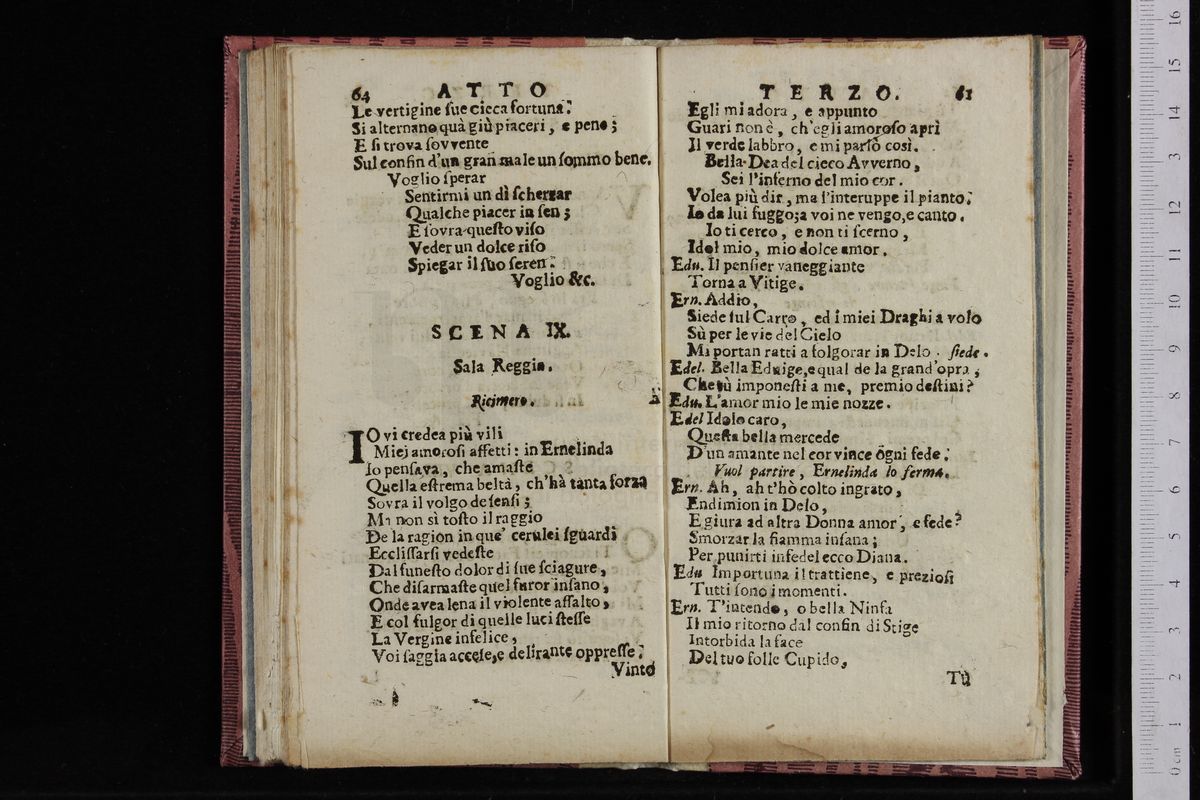 64 ATTO
Le vertigine sue cieca fortuna:
Si alternano quà giù piaceri, e pene;
E si trova sovvente
Sul confin d'un gran male un sommo bene.
Voglio sperar
Sentirmi un dì scherzar
Qualche piacer in sen;
E sovra questo viso
Veder un dolce riso
Spiegar il suo seren:
Voglio &c.
SCENA IX.
Sala Reggia.
Ricimero.
IO vi credea più vili
Miei amorosi affetti: in Ernelinda
Io pensava, che amaste
Quella estrema beltà, ch'hà tanta forza
Sovra il volgo de sensi;
Ma non sì tosto il raggio
De la ragion in que' cerulei sguardi
Ecclissarsi vedeste
Dal funesto dolor di sue sciagure,
Che disarmaste quel furor insano,
Onde avea lena il violente assalto,
E col fulgor di quelle luci stesse
La Vergine infelice,
Voi saggia accese, e delirante oppresse:
Vinto
TERZO. 61
Egli mi adora, e appunto
Guari non è, ch'egli amoroso aprì
Il verde labbro, e mi parlò così.
Bella Dea del cieco Avverno,
Sei l'inferno del mio cor.
Volea più dir, ma l'interuppe il pianto:
Io da lui fuggo; a voi ne vengo, e canto.
Io ti cerco, e non ti scerno,
Idol mio, mio dolce amor.
Edu. Il pensier vaneggiante
Torna a Vitige.
Ern. Addio,
Siede sul Carro, ed i miei Draghi a volo
Sù per le vie del Cielo
Mi portan ratti a folgorar in Delo. siede.
Edel. Bella Eduige, e qual de la grand'opra,
Che tù imponesti a me, premio destini?
Edu. L'amor mio le mie nozze.
Edel Idolo caro,
Questa bella mercede
D'un amante nel cor vince ogni fede:
Vuol partire, Ernelinda lo ferma.
Ern. Ah, ah t'hò colto ingrato,
Endimion in Delo,
E giura ad altra Donna amor, e fede?
Smorzar la fiamma insana;
Per punirti infedel ecco Diana.
Edu Importuna il trattiene, e preziosi
Tutti sono i momenti.
Ern. T'intendo, o bella Ninfa
Il mio ritorno dal confin di Stige
Intorbida la face
Del tuo folle Cupido,
Tù